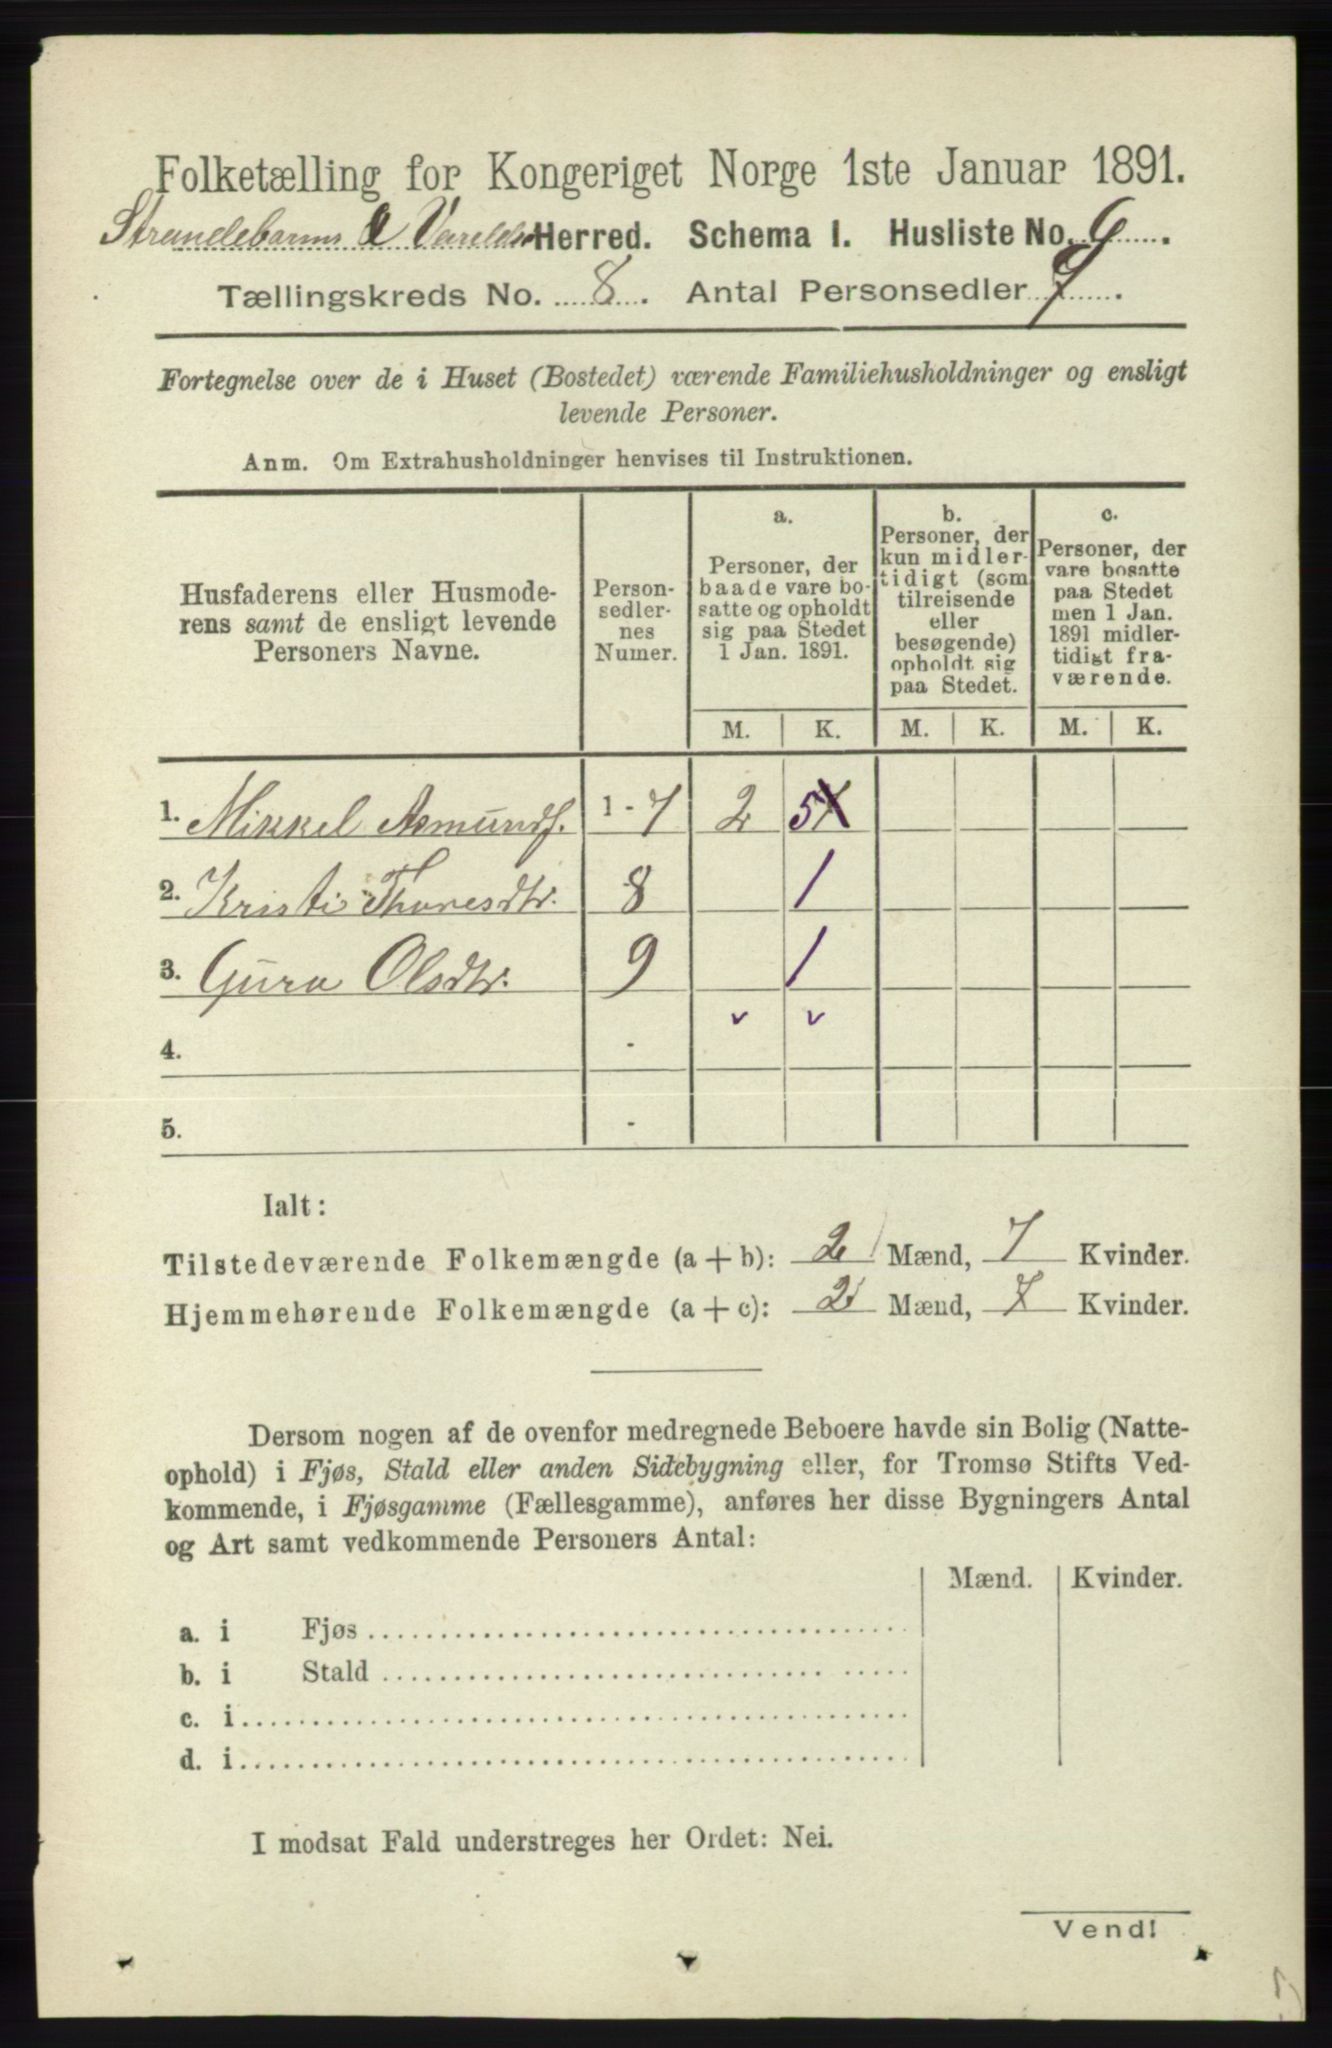 Folketælling for Kongeriget Norge 1ste Januar 1891.
Strandebarms & Varelds Herred. Schema I. Husliste No. 6.
Tællingskreds No. 8. Antal Personsedler 9.
Fortegnelse over de i Huset (Bostedet) værende Familiehusholdninger og ensligt
levende Personer.
Anm. Om Extrahusholdninger henvises til Instruktionen.
Husfaderens eller Husmode-
rens samt de ensligt levende
Personers Navne.
Person-
sedler-
nes
Numer.
a.
Personer, der
baade vare bo-
satte og opholdt
sig paa Stedet
1 Jan. 1891.
b.
Personer, der
kun midler-
tidigt (som
tilreisende
eller
besøgende)
opholdt sig
paa Stedet.
c.
Personer, der
vare bosatte
paa Stedet
men 1 Jan.
1891 midler-
tidigt fra-
værende.
M. K. M. K. M. K.
1. Mikkel Asmunds. 1 - 7 2 5
2. Kristi Thoresdtr. 8 1
3. Guro Olsdtr. 9 1
v v
4. -
5. -
Ialt:
Tilstedeværende Folkemængde (a + b): 2 Mænd, 7 Kvinder.
Hjemmehørende Folkemængde (a + c): 2 Mænd, 7 Kvinder.
Dersom nogen af de ovenfor medregnede Beboere havde sin Bolig (Natte-
ophold) i Fjøs, Stald eller anden Sidebygning eller, for Tromsø Stifts Ved-
kommende, i Fjøsgamme (Fællesgamme), anføres her disse Bygningers Antal
og Art samt vedkommende Personers Antal:
Mænd. Kvinder.
a. i Fjøs
b. i Stald
c. i
d. i
I modsat Fald understreges her Ordet: Nei.
Vend!